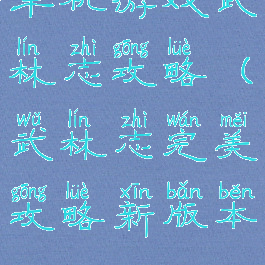 单机游戏武
lín zhì gōng lüè
林志攻略（
wǔ lín zhì wán měi
武林志完美
gōng lüè xīn bǎn běn
攻略新版本